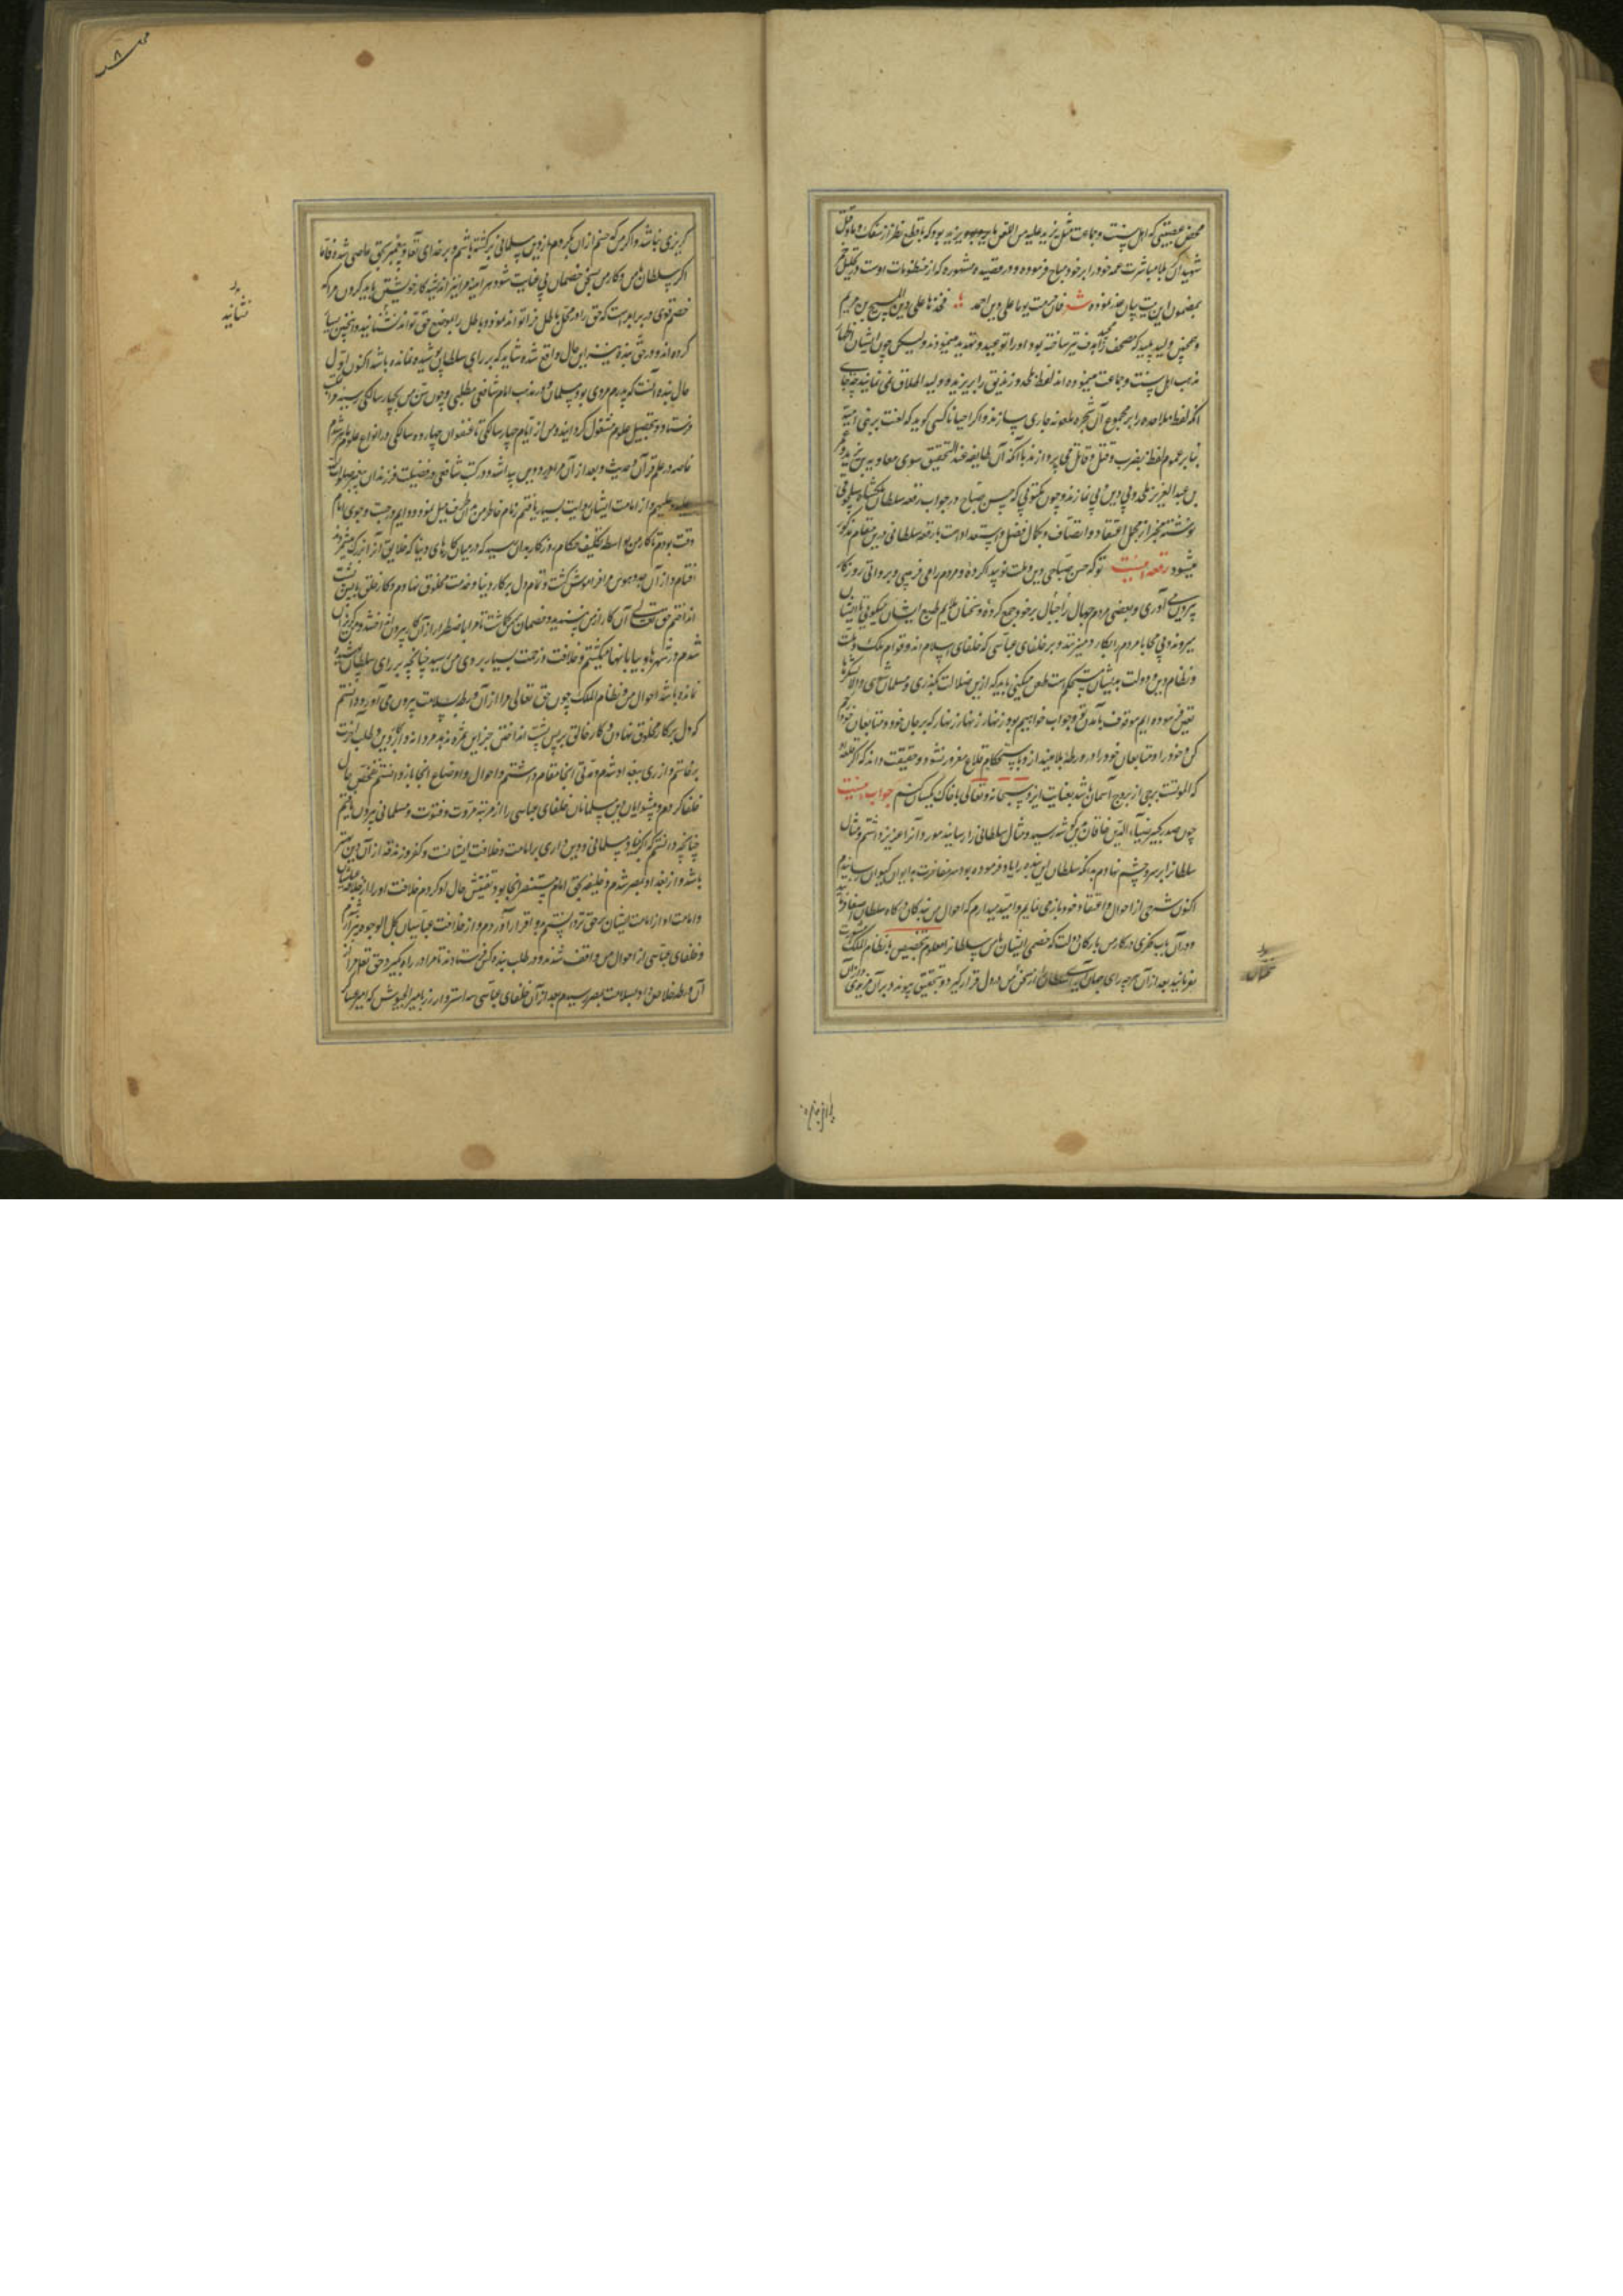 محض عصبیتی که اهل سنت و جماعت مثل یزید علیه من اللعن ما یزید بود که با قطع نظر از سفک دماء و قتل
شهیدان کربلا مباشرت عمه خود را بر خود مباح فرموده و در قصیده مشهوره که از منظومات اوست در تحلیل خمر
بمضمون این بیت بیان عذر نموده شعر فان حرمت یوما علی دین احمد فخذها علی دین المسیح بن مریم
و همچنین ولید پلید که مصحف مجید را هدف تیر ساخته بود و او را توعید و تهدید مینمودند و لیکن چون ایشان اظهار
مذهب اهل سنت و جماعت مینموده اند لفظ ملحد و زندیق را بر یزید و ولید اطلاق نمی نمایند چه جای
آنکه لفظ ملاحده را بر مجموع آن شجره ملعونه جاری سازند و اگر احیانا کسی گوید که لعنت بر بنی امیه
بنا بر عموم لفظ بضرب و قتل قایل می پردازند با آنکه آن طایفه عند التحقیق سوی معاویه بن یزید و عمر
بن عبد العزیز ملحد و بی دین و بی نمازند و چون مکتوبی که حسن صباح در جواب رقعه سلطان ملکشاه سلجوقی
نوشته مخبر از مجمل اعتقاد و انصاف و کمال فضل و استعداد اوست با رقعه سلطانی درین مقام مذکور
میشود رقعه اینست تو که حسن صباحی دین و ملت نو پیدا کرده و مردم را می فریبی و بر والی روزگار
بیرون می آوری و بعضی مردم جهال را جبال بر خود جمع کرده و سخنان ملایم طبع ایشان میگویی تا ایشان
میروند و بی محابا مردم را بکارد میزنند و بر خلفای عباسی که خلفای اسلام اند و قوام ملک و ملت
و نظام دین و دولت بدیشان مستحکم است طعن میکنی باید که ازین ضلالت بگذری و مسلمان شوی و الا لشکرها
تعیین فرموده ایم موقوف بآمدن تو و جواب خواهیم بود زنهار زنهار که بر جان خود و متابعان خود رحم
کن و خود را و متابعان خود را در ورطه بلا مینداز و باستحکام قلاع مغرور نشود و حقیقت داند که اگر قلعه او
که الموتست برجی از بروج آسمان باشد بعنایت ایزد سبحانه و تعالی با خاک یکسان کنم جواب اینست
چون صدر کبیر ضیاء الدین خاقان باین گوشه رسید و مثال سلطانی را رسانید مورد آنرا عزیز داشتم و مثال
سلطانرا بر سر و چشم نهادم بدانکه سلطان این بنده را یاد فرموده بود سر مفاخرت به ایوان کیوان رسانیدم
اکنون شمه از احوال و اعتقاد خود باز می نمایم و امید میدارم که احوال من بندگان درگاه سلطان اصغا فرمایند
و در آن باب فکری در کار من با ارکان دولت که خصمی ایشان با من سلطانرا معلوم بتخصیص با نظام الملک مشورت
نفرمایند بعد از آن هر چه رای جهان آرای سلطان را از سخن من در دل قرار گیرد و بتحقیق پیوندد بر آن مزیدی
گریزی نباشد و اگر من که حسنم از آن بگردم از دین مسلمانی برگشته باشم و بر خدای تعالی و پیغمبر بحق عاصی شده و فاما
اگر سلطان با من و کار من بسخن خصمان بی عنایت شود هر آینه مرا نیز اندیشه کار خویشتن باید کردن مرا که
خصم قوی در برابر است که حق را در محل باطل فرا تواند نمود و باطل را بموضع حق تواند نشانید و همچنین بسیار
کرده اند و در حق بنده نیز این حال واقع شده شاید که بر رای سلطان پوشیده نمانده باشد اکنون اول
حال بنده آنست که پدرم مردی بود مسلمان و در مذهب امام شافعی مطلبی و چون سن من بچهار سالگی رسید مرا بمکتب
فرستاد و بتحصیل علوم مشغول گردانید و من از ایام چهار سالگی تا عنفوان چهارده سالگی در انواع علوم ماهر شدم
خاصه در علم قرآن و حدیث و بعد از آن مرا درد دین پیدا شد و در کتب شافعی در فضیلت فرزندان پیغمبر صلوات الله
علیهم و از امامت ایشان روایت بسیار یافتم زمام خاطر من بدان طرف میل نموده و دایم در جست و جوی امام
وقت بودم تا کار من بواسطه تکلیف حکام روزگار بدان رسید که در میان کارهای دنیا که خلایق آنرا بزرگ می شمرند
افتادم و از آن جد و هوس مرا فراموش گشت و تمام دل بر کار دنیا و خدمت مخلوق نهادم و کار خالق با پس پشت
انداختم حق تعالی آن کار از من نپسندید و خصمان بمن گماشت تا مرا باضطرار از آن کار بیرون انداختند و من گریزان
شدم و در شهرها و بیابانها میگشتم و خلافت و زحمت بسیار بر دی من رسید چنانچه بر رای سلطان پوشیده
نمانده باشد احوال من و نظام الملک چون حق تعالی مرا از آن ورطه بسلامت بیرون می آورد دانستم
که دل بر کار مخلوق نهادن و کار خالق بر پس پشت انداختن جز این ثمره ندهد مردانه وار کار دین و طلب آخرت
برخاستم و از ری ببغداد شدم و مدتی آنجا مقام داشتم و احوال و اوضاع آنجا باز دانستم تفحص حال
خلفا کردم و پیشوایان دین مسلمانان خلفای عباسی را از مرتبه مروت و فتوت و مسلمانی بیرون یافتم
چنانچه دانستم که اگر بنیاد مسلمانی و دین داری بر امامت و خلافت ایشانست و کفر و زندقه از آن دین بهتر
باشد و از بغداد بمصر شدم و خلیفه بحق امام مستنصر آنجا بود تفتیش حال او کردم خلافت او را از خلافت عباسیان
و امامت او از امامت ایشان بر حق تر دانستم و بدو اقرار آوردم و از خلافت عباسیان بکل الوجوه بیزار شدم
و خلفای عباسی از احوال من واقف شدند و در طلب بنده کس فرستادند تا مرا در راه بگیرد حق تعالی مرا از
آن ورطه خلاص داد و بسلامت بمصر رسیدم بعد از آن خلفای عباسی سه استر وار زر بامیر الجیوش که امیر عساکر
نشانیه